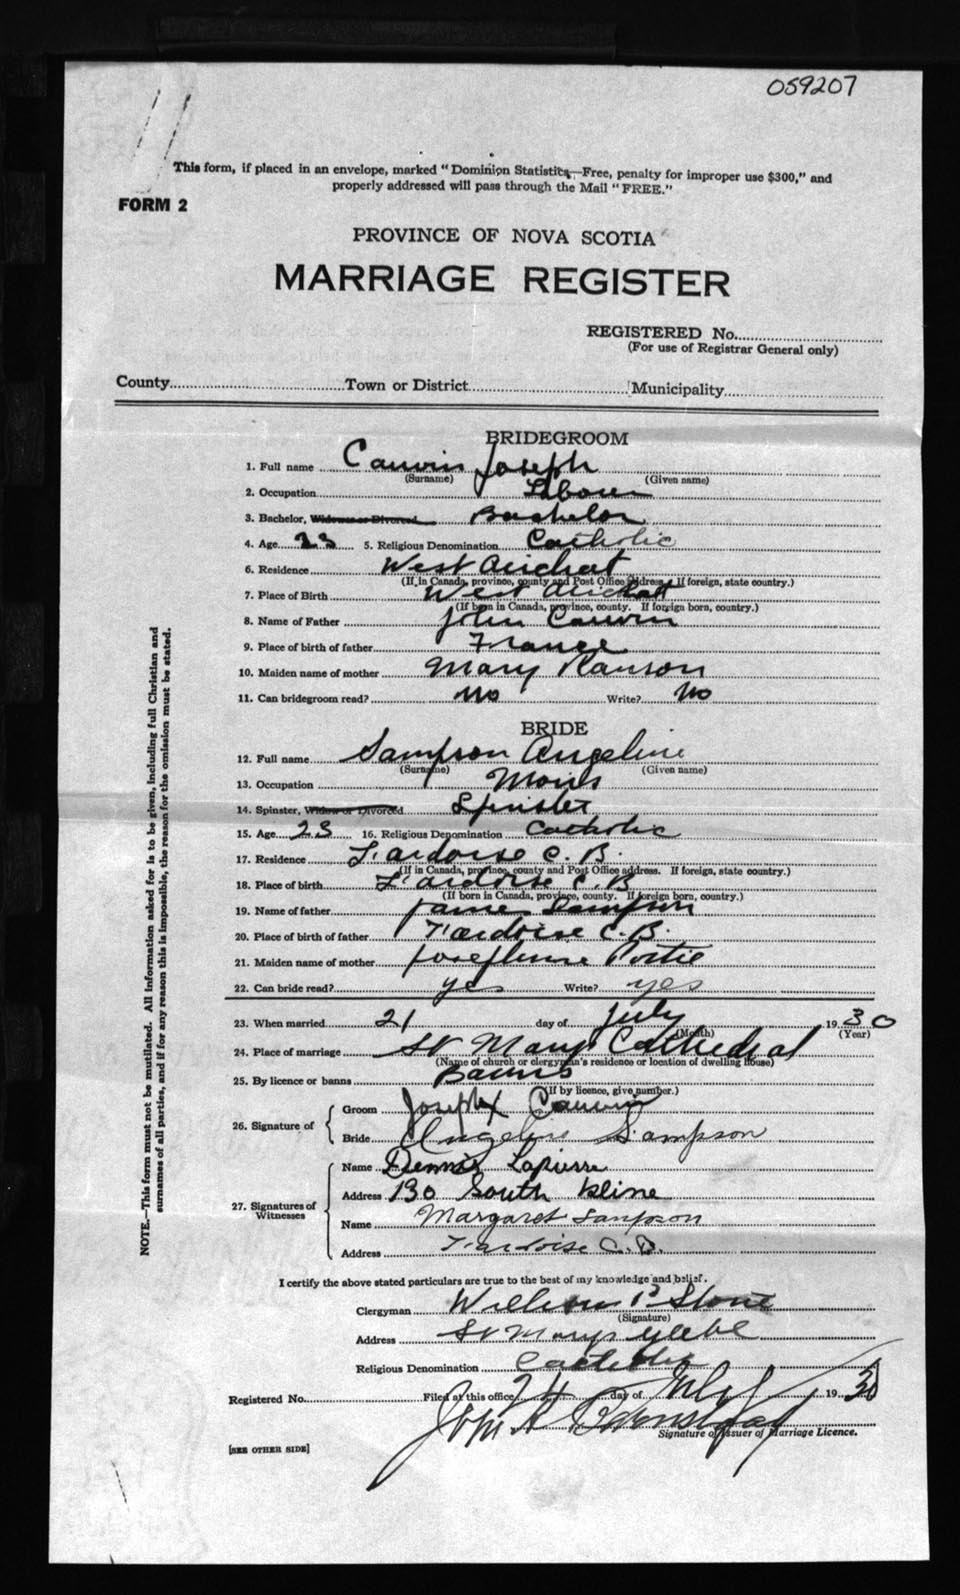 059207
This form, if placed in an envelope, marked "Dominion Statistics—Free, penalty for improper use $300," and
properly addressed will pass through the Mail "FREE."
FORM 2
PROVINCE OF NOVA SCOTIA
MARRIAGE REGISTER
REGISTERED No.
(For use of Registrar General only)
County Town or District Municipality
BRIDEGROOM
1. Full name Cauvin Joseph
(Surname) (Given name)
2. Occupation Labourer
3. Bachelor, Widower or Divorced Bachelor
4. Age 23 5. Religious Denomination Catholic
6. Residence West Arichat
(If in Canada, province, county and Post Office address. If foreign, state country.)
7. Place of Birth West Arichat
(If born in Canada, province, county. If foreign born, country.)
8. Name of Father John Cauvin
9. Place of birth of father France
10. Maiden name of mother Mary
11. Can bridegroom read? No Write? No
BRIDE
12. Full name Sampson Angeline
(Surname) (Given name)
13. Occupation
14. Spinster, Widow or Divorced Spinster
15. Age 23 16. Religious Denomination Catholic
17. Residence L'ardoise C. B.
(If in Canada, province, county and Post Office address. If foreign, state country.)
18. Place of birth L'ardoise C. B.
(If born in Canada, province, county. If foreign born, country.)
19. Name of father James Sampson
20. Place of birth of father L'ardoise C. B.
21. Maiden name of mother Josephine
22. Can bride read? yes Write? yes
23. When married 21 day of July 1930
(Month) (Year)
24. Place of marriage St Marys Cathedral
(Name of church or clergyman's residence or location of dwelling house)
25. By licence or banns Banns
(If by licence, give number.)
26. Signature of Groom Joseph X Cauvin
Bride Angeline Sampson
27. Signatures of Witnesses Name Dennis Lapierre
Address 130 South Kline
Name Margaret Sampson
Address L'ardoise C. B.
I certify the above stated particulars are true to the best of my knowledge and belief.
Clergyman William P Stone
(Signature)
Address St Marys Glebe
Religious Denomination Catholic
Registered No. Filed at this office 24 day of July 1930
Signature of Issuer of Marriage Licence.
[SEE OTHER SIDE]
NOTE.—This form must not be mutilated. All information asked for is to be given, including full Christian and
surnames of all parties, and if for any reason this is impossible, the reason for the omission must be stated.